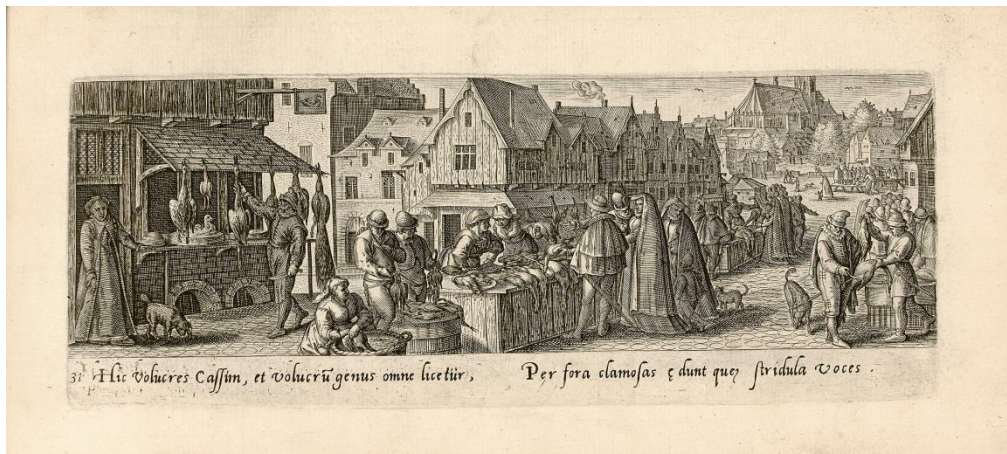 31 Hic Volucres Cassim, et volucrū genus omne licetür, Per fora clamosas ę dunt quę stridula voces .